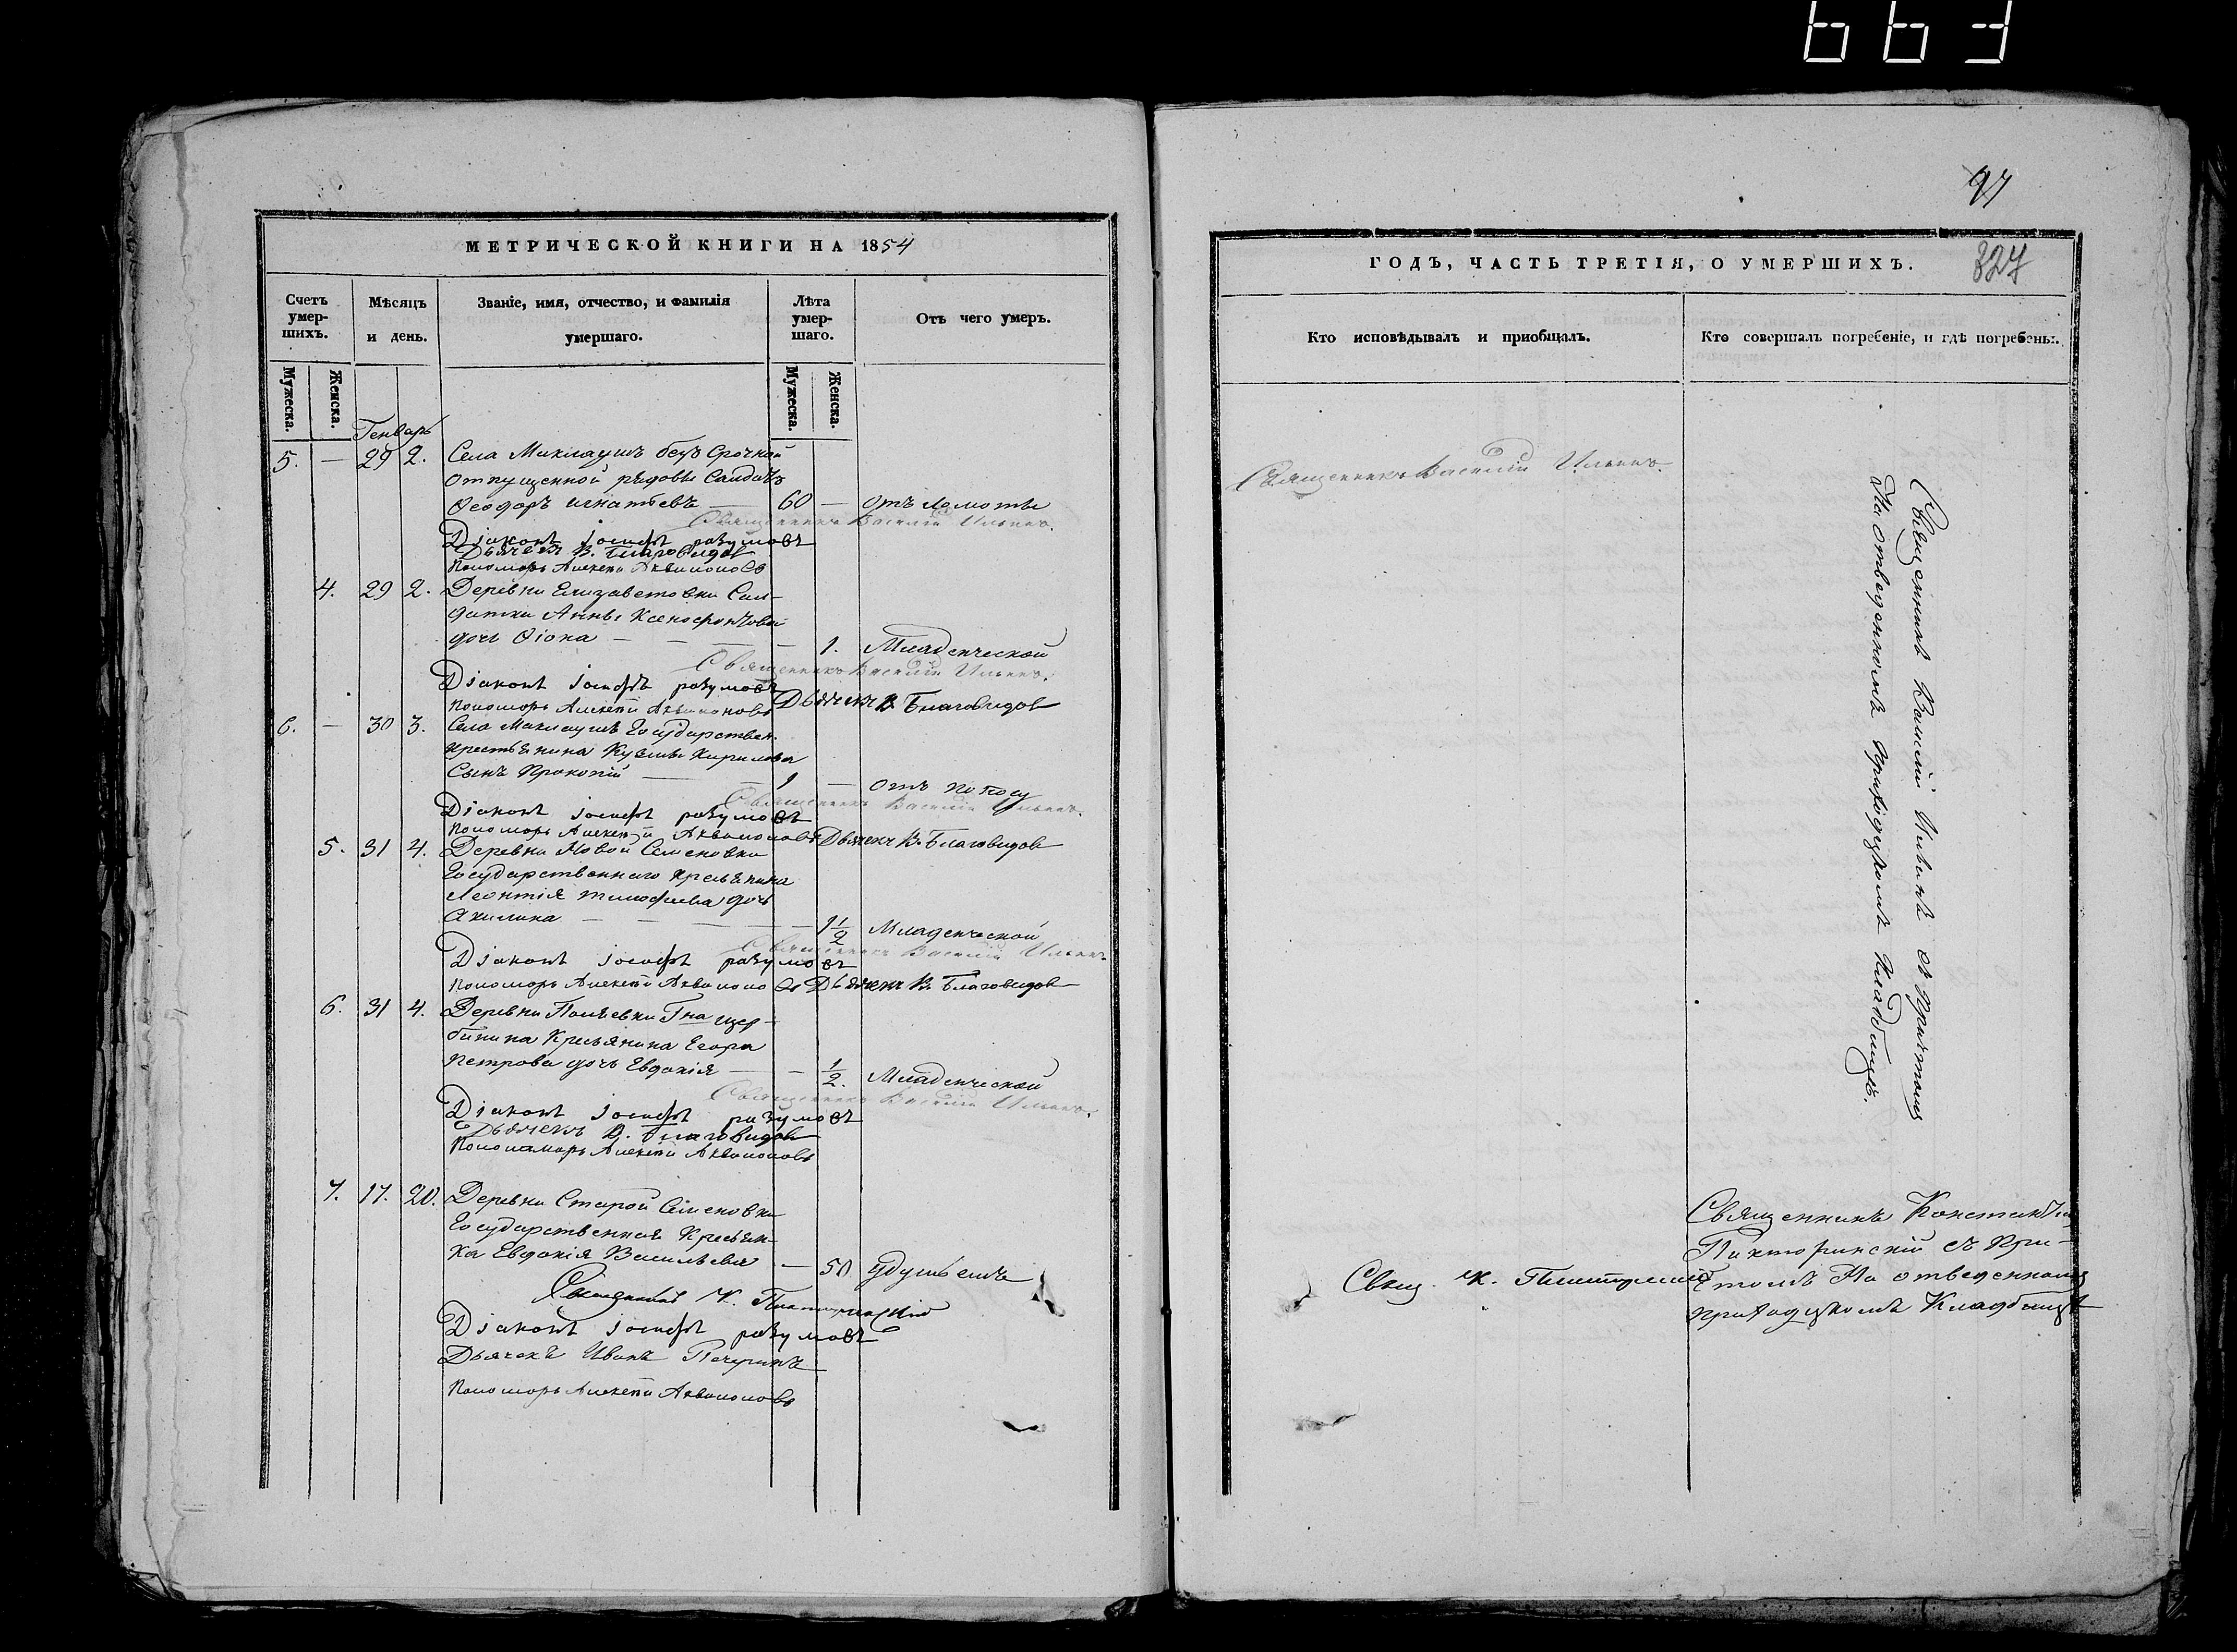 663
97
МЕТРИЧЕСКОЙ КНИГИ НА 1854
Счетъ умер-шихъ.
Мѣсяцъ и день.
Званіе, имя, отчество, и фамилія умершаго.
Лѣта умер-шаго.
Отъ чего умеръ.
Мужеска.
Женска.
Мужеска.
Женска.
Генварь
5. — 29 2. Села Маклаушъ безъ срочной
отпущенной рядовы Салдатъ
Ѳеодоръ Игнатьевъ — 60 — отъ ломоты
Священникъ Василій Ильинъ.
Діаконъ Іосифъ Разумовъ
Дьячекъ В. Благовидовъ
Пономарь Алексѣй Аквилоновъ
4. 29 2. Деревни Елизаветовки Сал-
датки Анны Ксенофонтовой
дочь Ѳіона — — 1. Младенческой
Священникъ Василій Ильинъ.
Діаконъ Іосифъ Разумовъ
Пономарь Алексѣй Аквилоновъ Дьячекъ В. Благовидовъ
6. — 30 3. Села Маклаушъ Государствен.
крестьянина Кузьмы Кирилова
Сынъ Прокопій — 1 — отъ поносу
Священникъ Василій Ильинъ.
Діаконъ Іосифъ Разумовъ
Пономарь Алексѣй Аквилоновъ Дьячекъ В. Благовидовъ
5. 31 4. Деревни Новой Семеновки
Государственнаго Кресьянина
Леонтія Тимофеева дочь
Акилина — — — 1 1/2 Младенческой
Священникъ Василій Ильинъ.
Діаконъ Іосифъ Разумовъ
Пономарь Алексѣй Аквилоновъ Дьячекъ В. Благовидовъ
6. 31 4. Деревни Полѣевки Гна Щер-
бинина Кресьянина Егора
Петрова дочь Евдокія — — 1/2. Младенческой
Священникъ Василій Ильинъ.
Діаконъ Іосифъ Разумовъ
Дьячекъ В. Благовидовъ
Пономарь Алексѣй Аквилоновъ
7. 17. 20. Деревни Старой Семеновки
Государственная Кресьян-
ка Евдокія Васильева — 50 удушьемъ
Священникъ К.
Діаконъ Іосифъ Разумовъ
Дьячекъ Иванъ Печеринъ
Пономарь Алексѣй Аквилоновъ
ГОДЪ, ЧАСТЬ ТРЕТІЯ, О УМЕРШИХЪ.
327
Кто исповѣдывалъ и пріобщалъ.
Кто совершалъ погребеніе, и гдѣ погребены.
Священникъ Василій Ильинъ.
Священникъ Василій Ильинъ съ Причтомъ
На отведенномъ Приходскомъ Кладбищѣ.
Свящ. К.
Священникъ Константинъ
съ При-
чтомъ На отведенномъ
приходскомъ Кладбищѣ